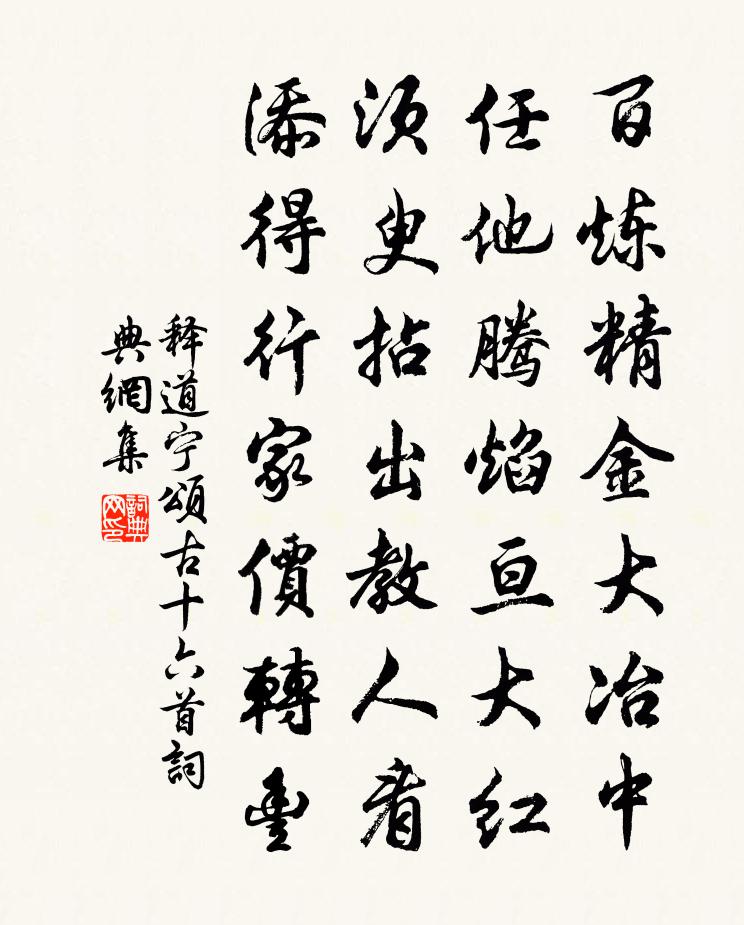 百炼精金大冶中
任他腾焰亘大红
须臾拈出教人看
添得行家價轉豐
释道宁頌古十六首詞
典網集
詞典
网印